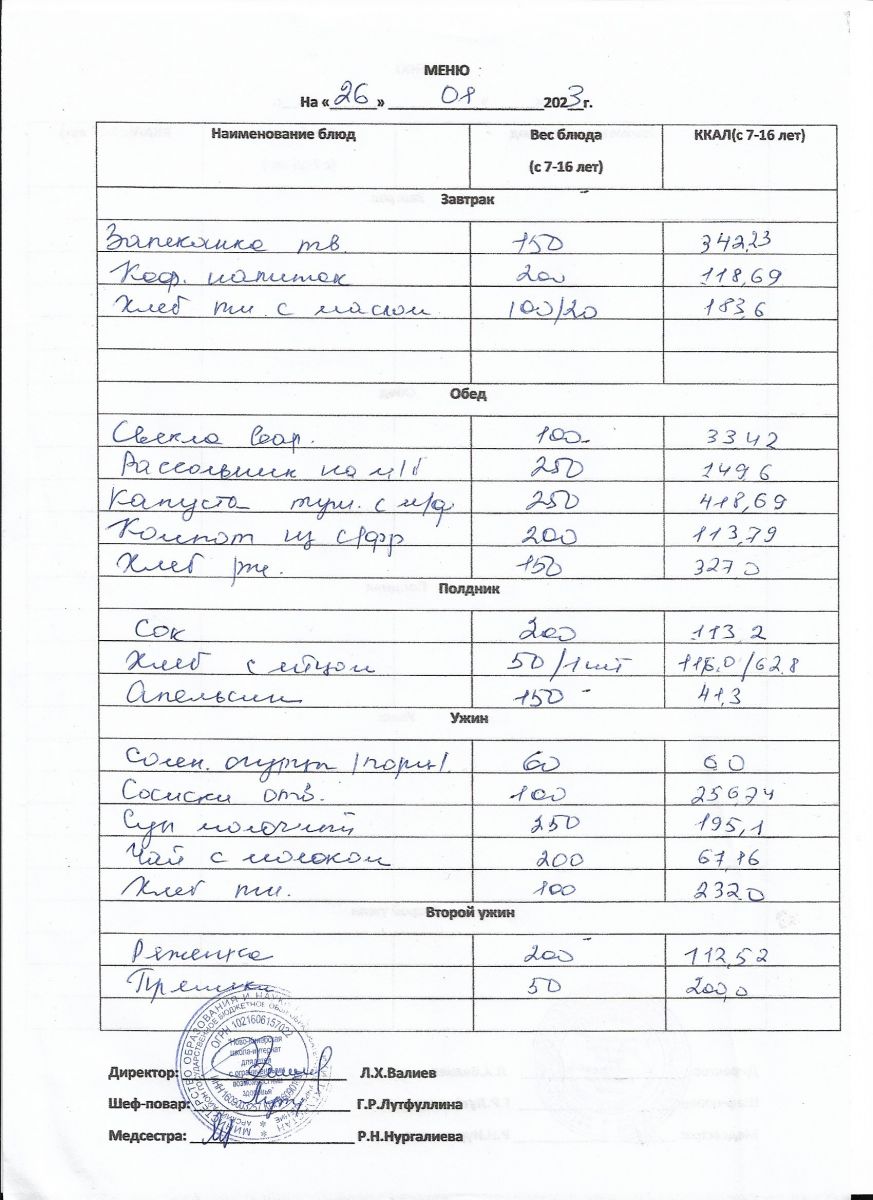 МЕНЮ
На « 26 » 08 2023 г.
Наименование блюд Вес блюда (с 7-16 лет) ККАЛ(с 7-16 лет)
Завтрак
Запеканка тв. 150 342,23
Коф. напиток 200 118,69
Хлеб пш. с маслом 100/20 183,6
Обед
Свекла отвар. 100 33,42
Рассольник на м/б 250 149,6
Капуста туш. с м/ф 250 418,69
Компот из с/фр 200 113,79
Хлеб рж. 150 327,0
Полдник
Сок 200 113,2
Хлеб с яйцом 50/1шт 116,0/62,8
Апельсин 150 41,3
Ужин
Солен. огурцы /порц/. 60 60
Сосиски отв. 100 256,74
Суп молочный 250 195,1
Чай с молоком 200 67,16
Хлеб пш. 100 232,0
Второй ужин
Ряженка 200 112,52
Пряники 50 200,0
ОГРН 1021606157022
школа-интернат
для детей
с ограниченными
возможностями
здоровья"
Директор: Л.Х.Валиев
Шеф-повар: Г.Р.Лутфуллина
Медсестра: Р.Н.Нургалиева